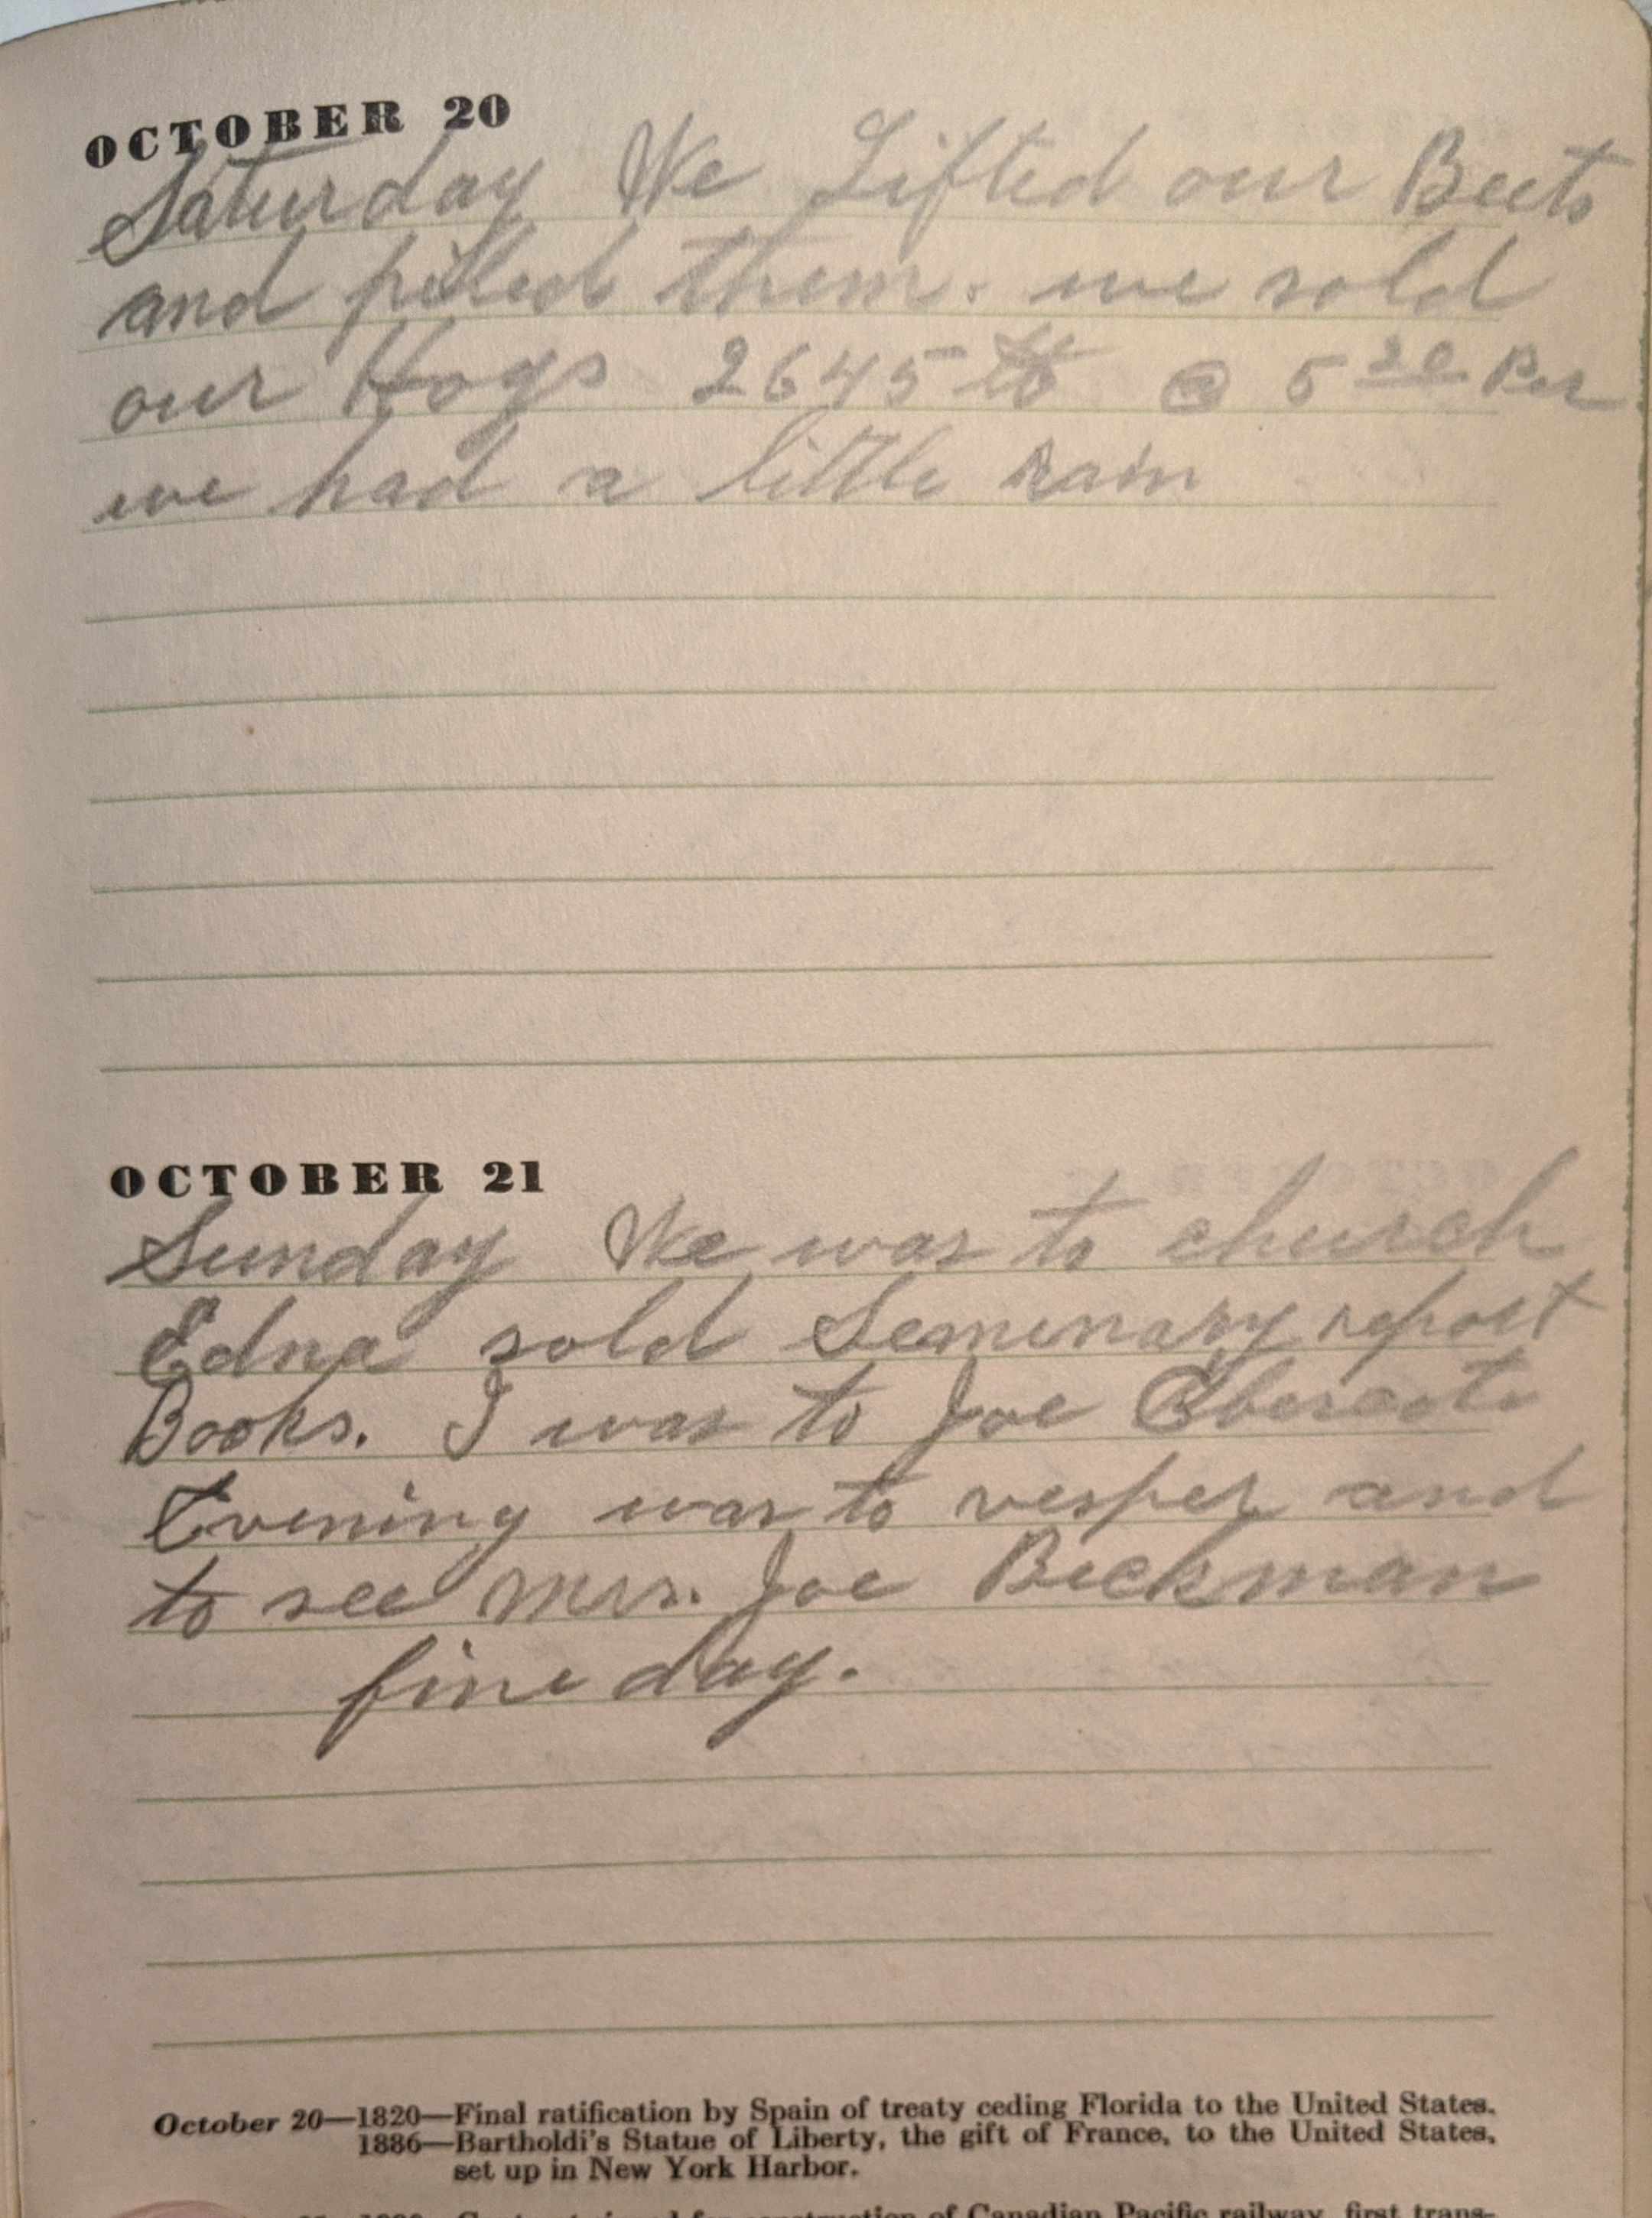 OCTOBER 20
Saturday We Lifted our Beets
and pilled them. we sold
our Hogs 2645 lb @ 5 20 Per
we had a little rain
OCTOBER 21
Sunday We was to church
Edna sold Seminary report
Books. I was to Joe
Evening was to vesper and
to see Mrs. Joe Beckman
fine day.
October 20—1820—Final ratification by Spain of treaty ceding Florida to the United States.
1886—Bartholdi's Statue of Liberty, the gift of France, to the United States,
set up in New York Harbor.
construction of Canadian Pacific railway, first trans-